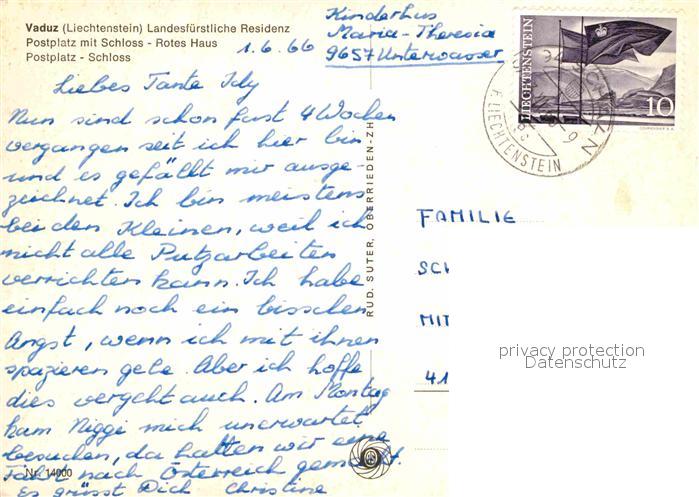 Vaduz (Liechtenstein) Landesfürstliche Residenz
Postplatz mit Schloss - Rotes Haus
Postplatz - Schloss
1.6.66
Kinderhus
Maria-Theresia
9657 Unterwasser
Liebes Tante Idy
Nun sind schon fast 4 Wochen
vergangen seit ich hier bin
und es gefällt mir ausge-
zeichnet. Ich bin meistens
bei den Kleinen, weil ich
nicht alle Putzarbeiten
verrichten kann. Ich habe
einfach noch ein bisschen
Angst, wenn ich mit ihnen
spazieren gehe. Aber ich hoffe
dies vergeht auch. Am Montag
kam Niggi mich unerwartet
besuchen, da hatten wir eine
Fahrt nach Österreich gemacht.
Es grüsst Dich Christine
Nr. 14000
RUD. SUTER, OBERRIEDEN-ZH
LIECHTENSTEIN
10
COURVOISIER S.A.
F. LIECHTENSTEIN
FAMILIE
SC
MIT
41
privacy protection
Datenschutz